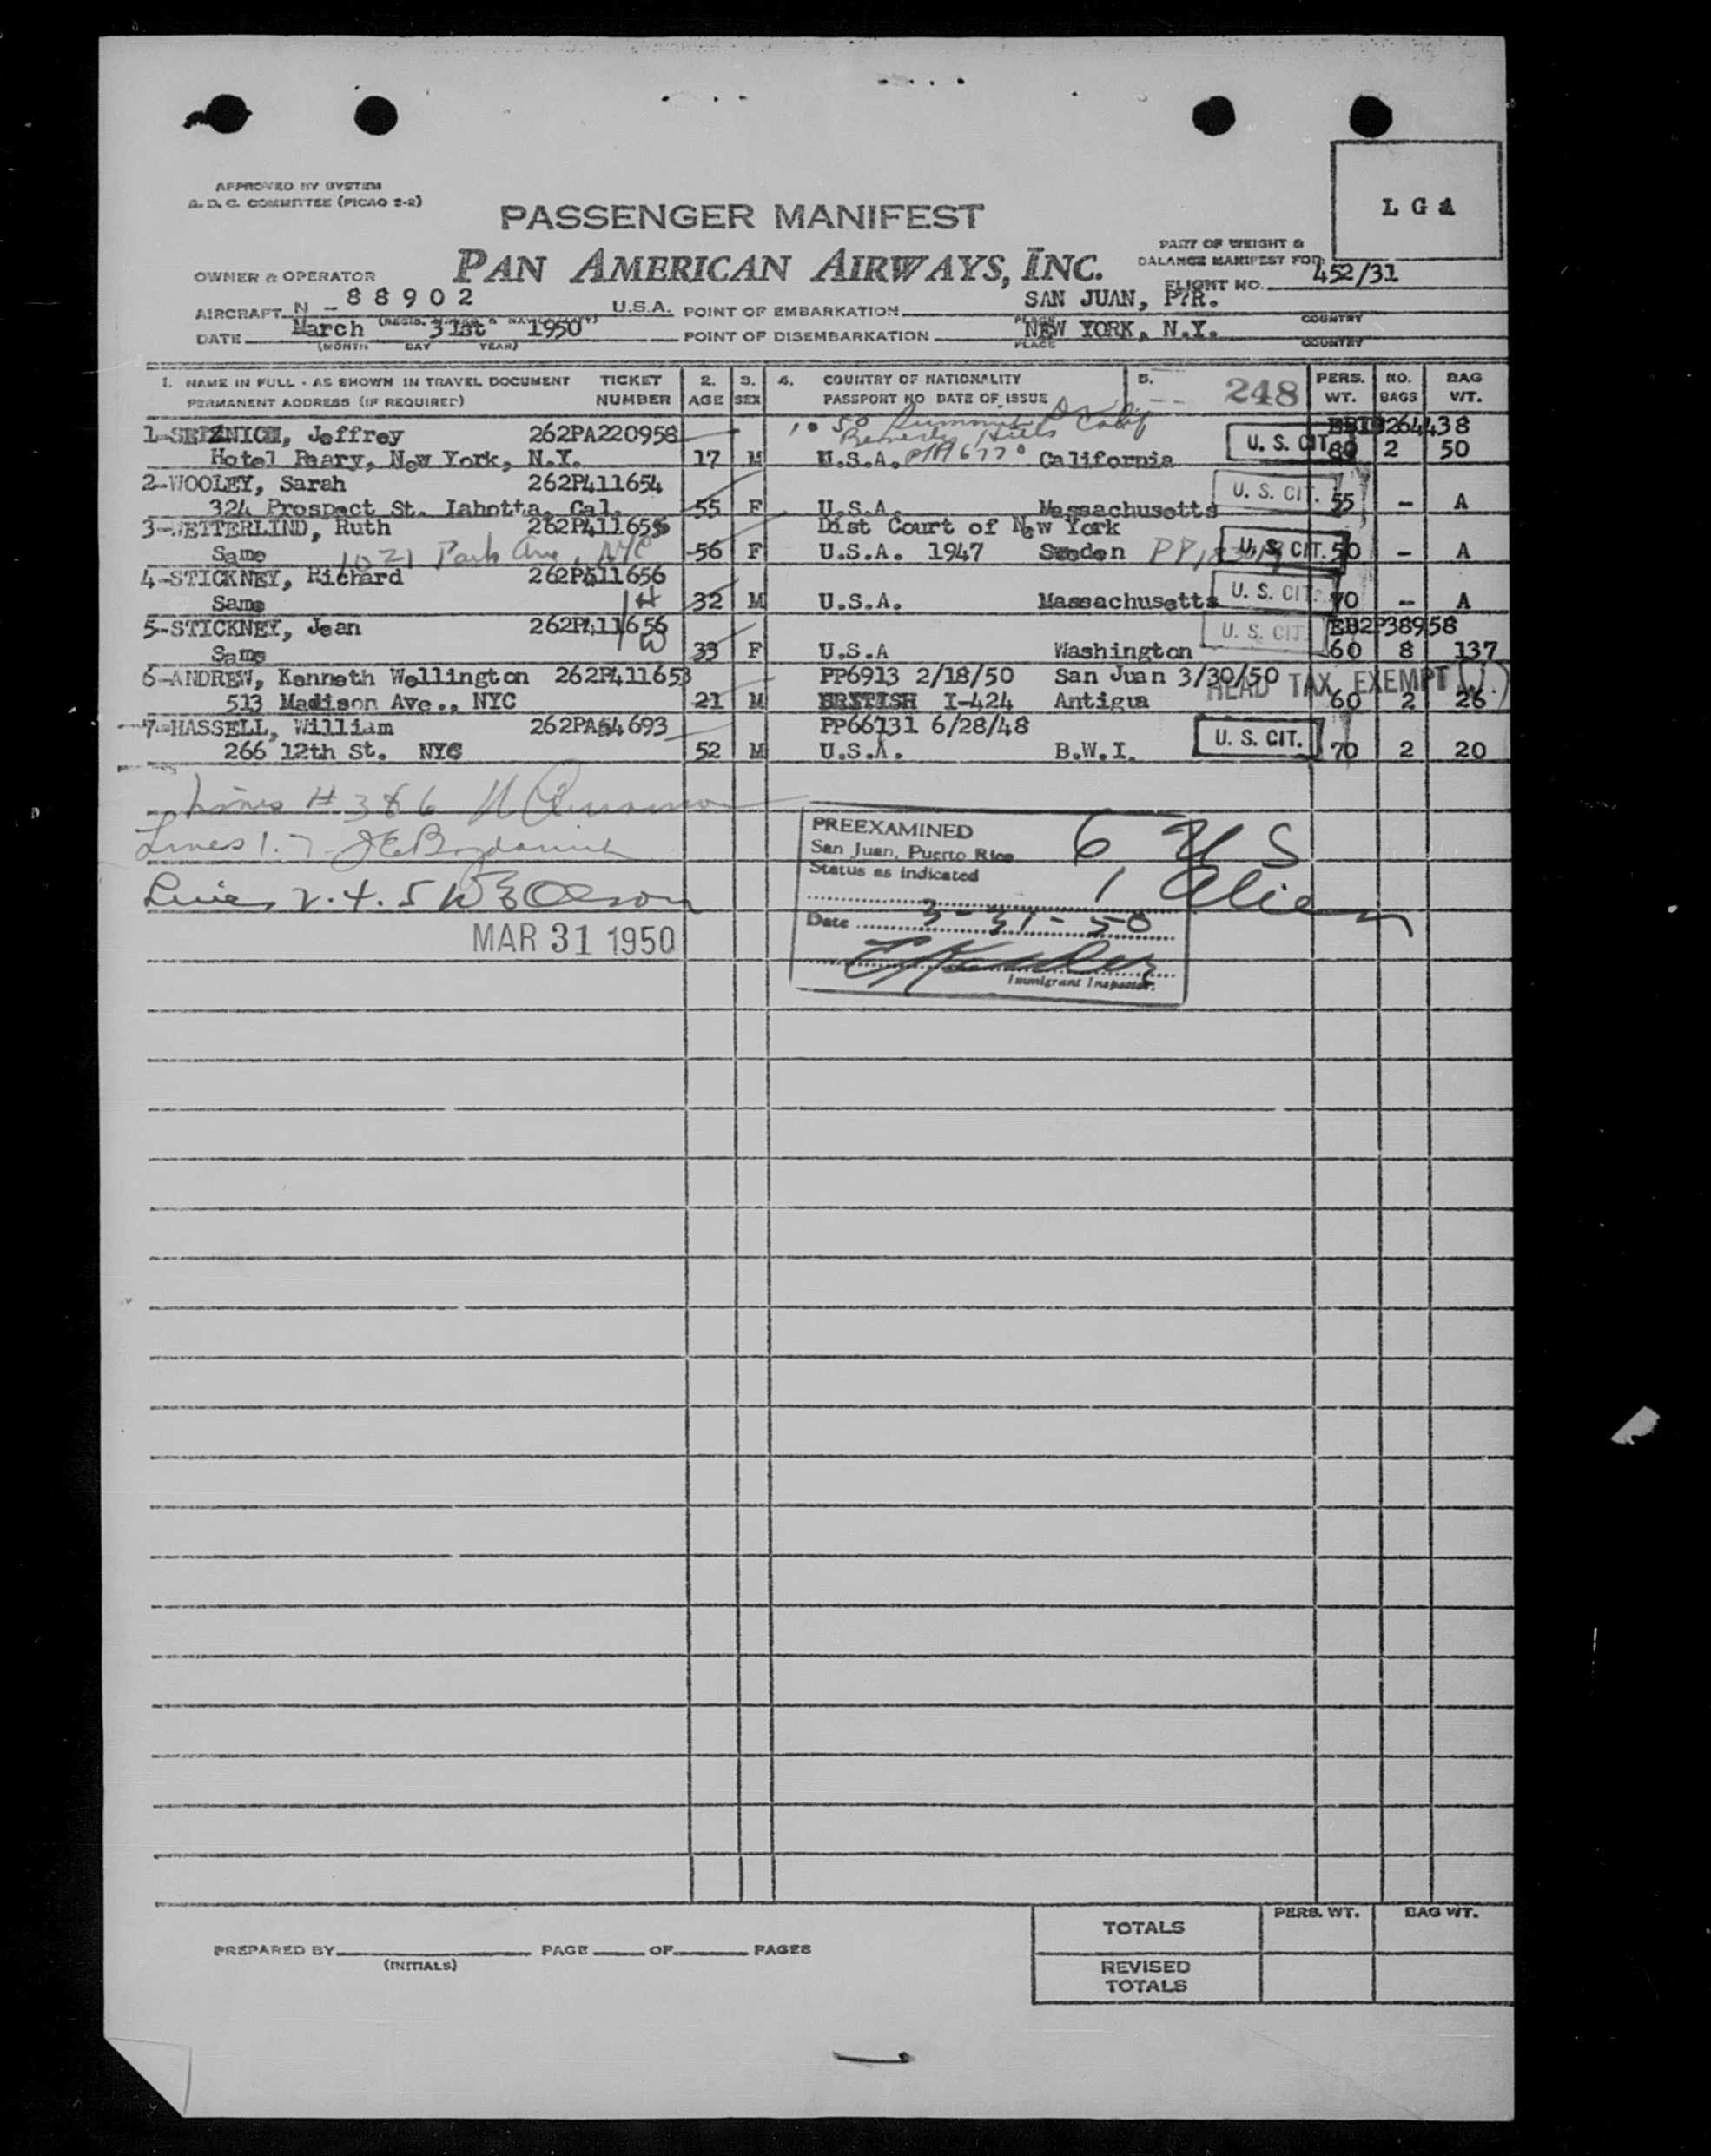 APPROVED BY SYSTEM
A. D. C. COMMITTEE (PICAO 2-2)
LGA
PASSENGER MANIFEST
PAN AMERICAN AIRWAYS, INC.
PART OF WEIGHT &
BALANCE MANIFEST FOR:
OWNER & OPERATOR
FLIGHT NO. 452/31
AIRCRAFT N - 88902 U.S.A. POINT OF EMBARKATION SAN JUAN, P.R.
PLACE COUNTRY
DATE March 31st 1950 POINT OF DISEMBARKATION NEW YORK, N.Y.
(MONTH DAY YEAR) PLACE COUNTRY
1. NAME IN FULL - AS SHOWN IN TRAVEL DOCUMENT TICKET 2. 3. 4. COUNTRY OF NATIONALITY 5. 248 PERS. NO. BAG
PERMANENT ADDRESS (IF REQUIRED) NUMBER AGE SEX PASSPORT NO DATE OF ISSUE WT. BAGS WT.
1050 Summit Dr
Beverly Hills Calif
1- Jeffrey 262PA220958
Hotel Peary, New York, N.Y. 17 M U.S.A. California U. S. CIT. 80 2 50
2-WOOLEY, Sarah 262P411654
324 Prospect St. Lahotta, Cal. 55 F U.S.A. Massachusetts U. S. CIT. 55 - A
3-WETTERLIND, Ruth 262P411655 Dist Court of New York
Same 1021 Park Ave, NYC 56 F U.S.A. 1947 Sweden U. S. CIT. 50 - A
4-STICKNEY, Richard 262P411656
Same 1H 32 M U.S.A. Massachusetts U. S. CIT. 70 - A
5-STICKNEY, Jean 262P411656 EB2P38958
Same 1W 33 F U.S.A Washington U. S. CIT. 60 8 137
6-ANDREW, Kenneth Wellington 262P411653 PP6913 2/18/50 San Juan 3/30/50
HEAD TAX EXEMPT
513 Madison Ave., NYC 21 M BRITISH I-424 Antigua 60 2 26
7-HASSELL, William 262PA54693 PP66731 6/28/48
266 12th St. NYC 52 M U.S.A. B.W.I. U. S. CIT. 70 2 20
Lines # 3 & 6
Lines 1.7
Lines 2.4.5 W E Olson
MAR 31 1950
PREEXAMINED
San Juan, Puerto Rico
Status as indicated
6 US
1 Alien
Date 3-31-50
Immigrant Inspector.
TOTALS PERS. WT. BAG WT.
PREPARED BY PAGE OF PAGES
(INITIALS)
REVISED
TOTALS